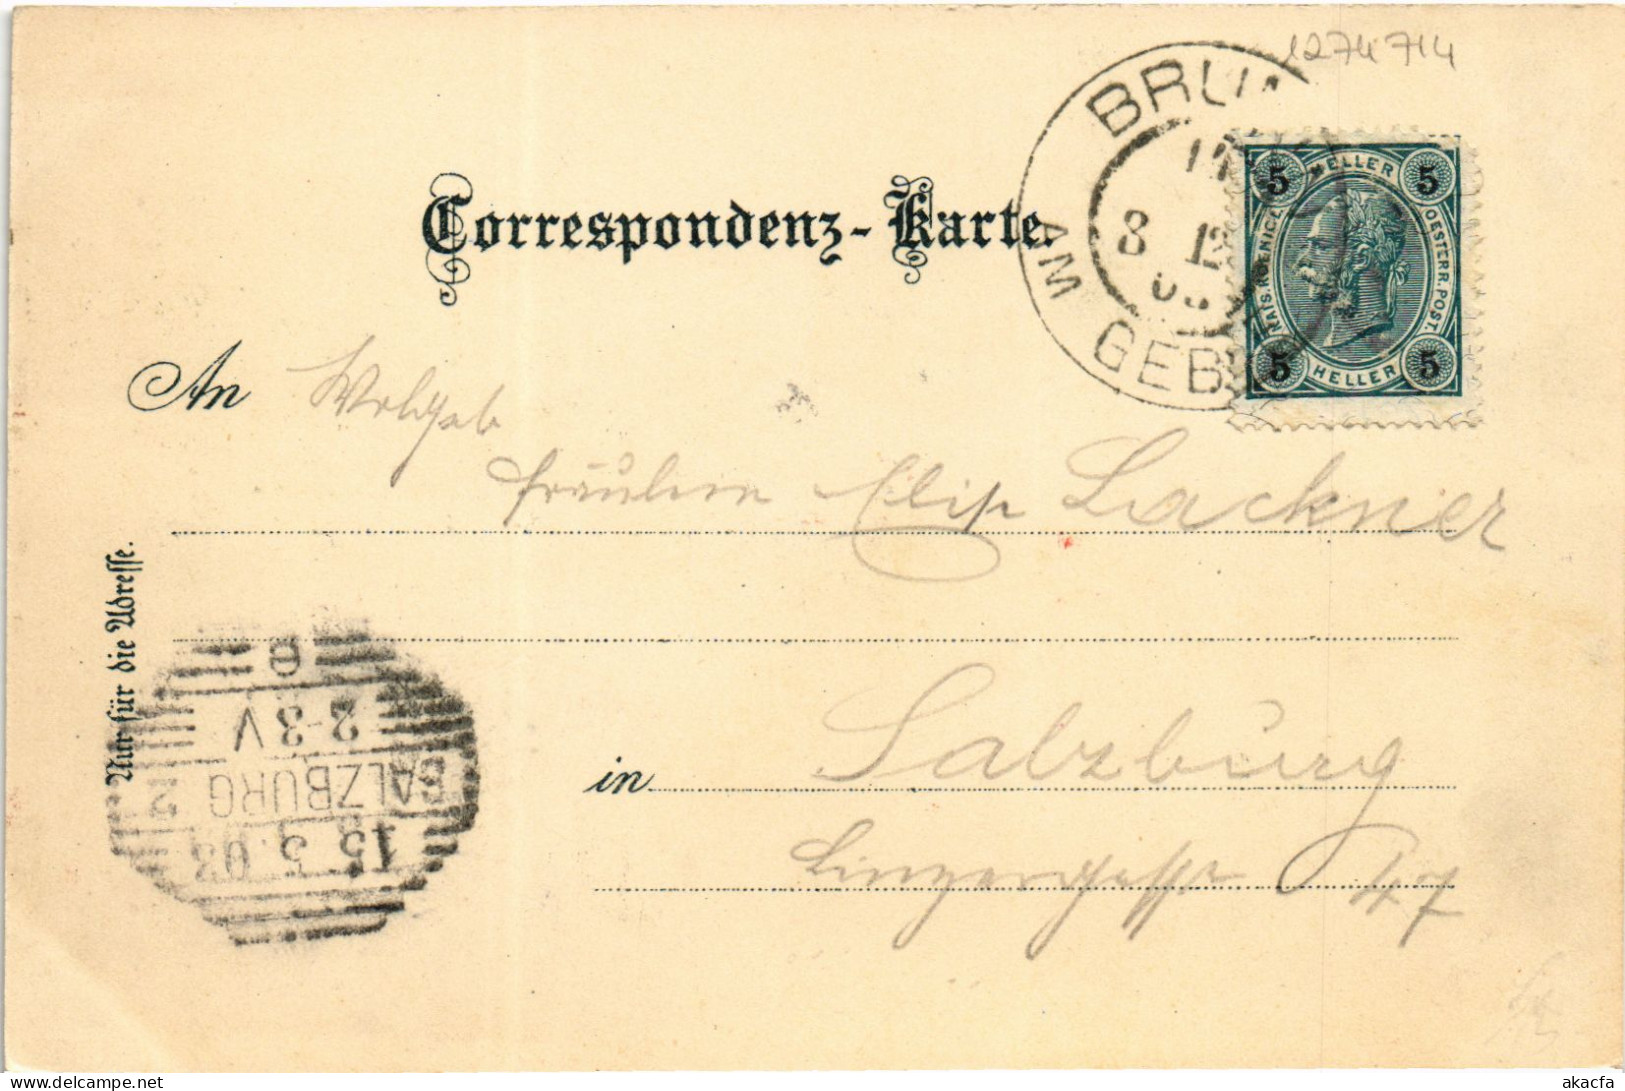 1274714
BRUN
8 12
AM GEB
5 HELLER 5
KAIS. KOENIGL. OESTERR. POST.
5 HELLER 5
Correspondenz-Karte.
An Wohlgeb
Fräulein Elise Lackner
Nur für die Adresse.
in Salzburg
Linzergasse 47
2-3 V
SALZBURG 2
15 3.03
akacfa